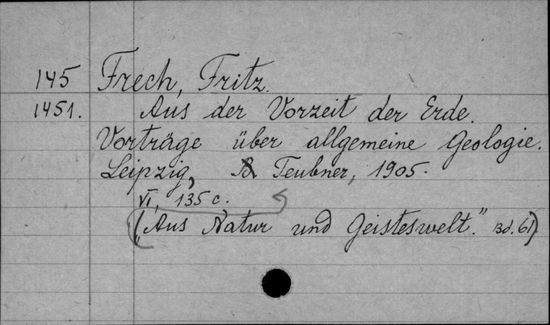 145 Frech, Fritz.
1451. Aus der Vorzeit der Erde.
Vorträge über allgemeine Geologie.
Leipzig, Teubner, 1905.
VI, 135 c.
("Aus Natur und Geisteswelt." Bd. 61)